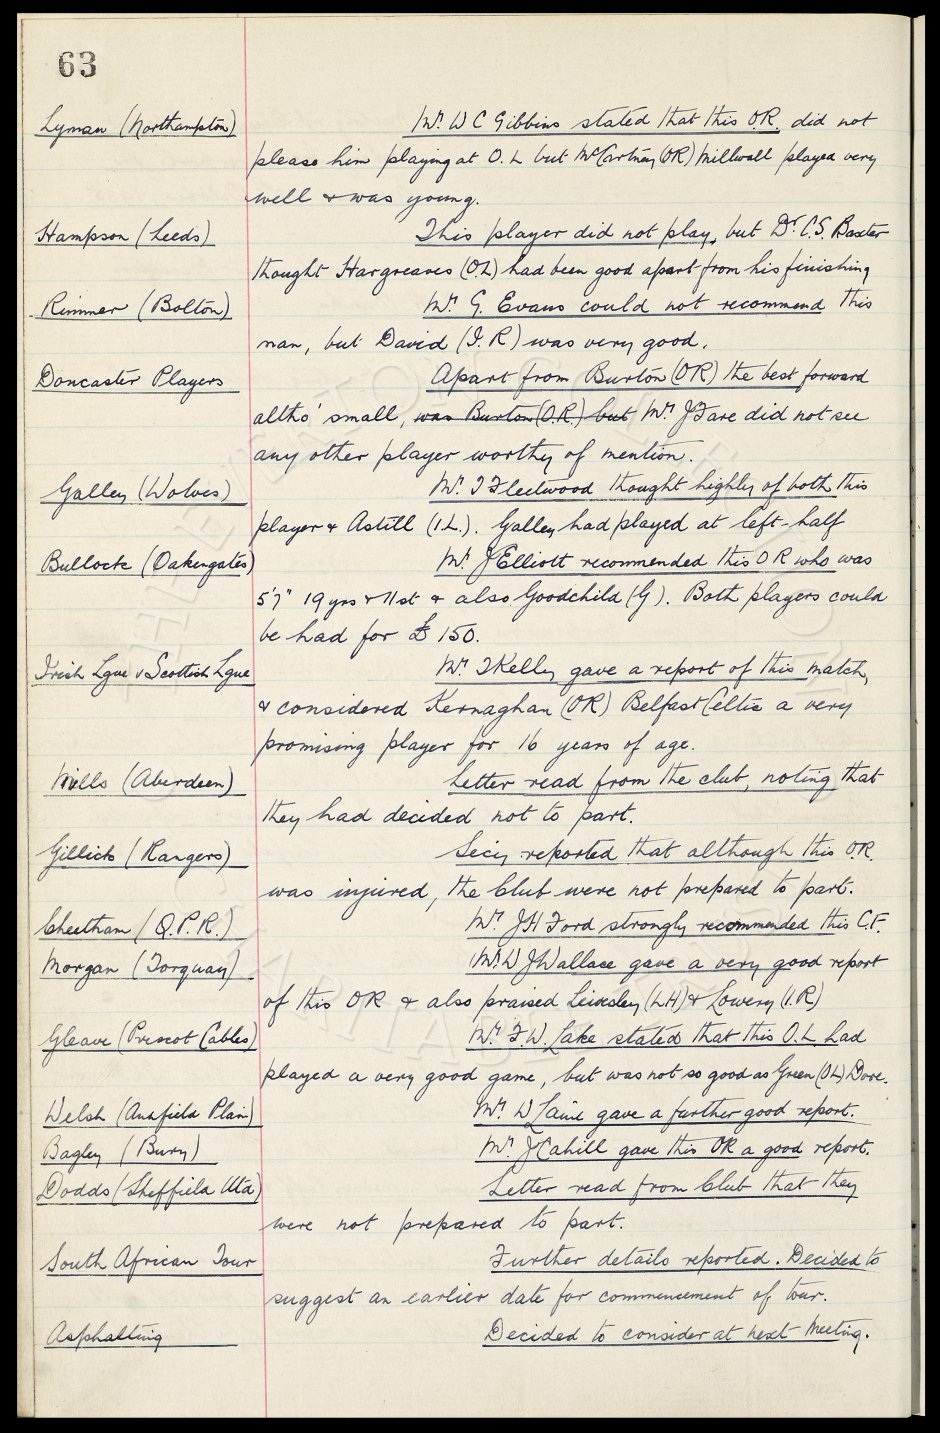 63
Lyman (Northampton) Mr. W C Gibbins stated that this O.R. did not
please him playing at O.L but McCartney (OR) Millwall played very
well & was young.
Hampson (Leeds) This player did not play, but Dr. C.S. Baxter
thought Hargreaves (O.L) had been good apart from his finishing
Rimmer (Bolton) Mr. G. Evans could not recommend this
man, but David (I.R) was very good.
Doncaster Players Apart from Burton (OR) the best forward
altho' small, was Burton (O.R.) but Mr. J Fare did not see
any other player worthy of mention.
Galley (Wolves) Mr. T Fleetwood thought highly of both this
player & Astill (I.L.). Galley had played at left-half
Bullock (Oakengates) Mr. J Elliott recommended this OR who was
5'7" 19 yrs & 11 st & also Goodchild (G). Both players could
be had for £150.
Irish Lgue v Scottish Lgue Mr. T Kelly gave a report of this match,
& considered Kernaghan (OR) Belfast Celtic a very
promising player for 16 years of age.
Mills (Aberdeen) Letter read from the club, noting that
they had decided not to part.
Gillick (Rangers) Secy reported that although this O.R.
was injured, the Club were not prepared to part.
Cheetham (Q.P.R.) Mr. J H Ford strongly recommended this C.F.
Morgan (Torquay) Mr. W J Wallace gave a very good report
of this OR & also praised (LH) & Lowery (I.R)
Gleave (Prescot Cables) Mr. F.W. Lake stated that this O.L. had
played a very good game, but was not so good as Green (OL) Dove.
Welsh (Annfield Plain) Mr. W Laine gave a further good report.
Bagley (Bury) Mr. J Cahill gave this OR a good report.
Dodds (Sheffield Utd) Letter read from Club that they
were not prepared to part.
South African Tour Further details reported. Decided to
suggest an earlier date for commencement of tour.
Asphalting Decided to consider at next Meeting.